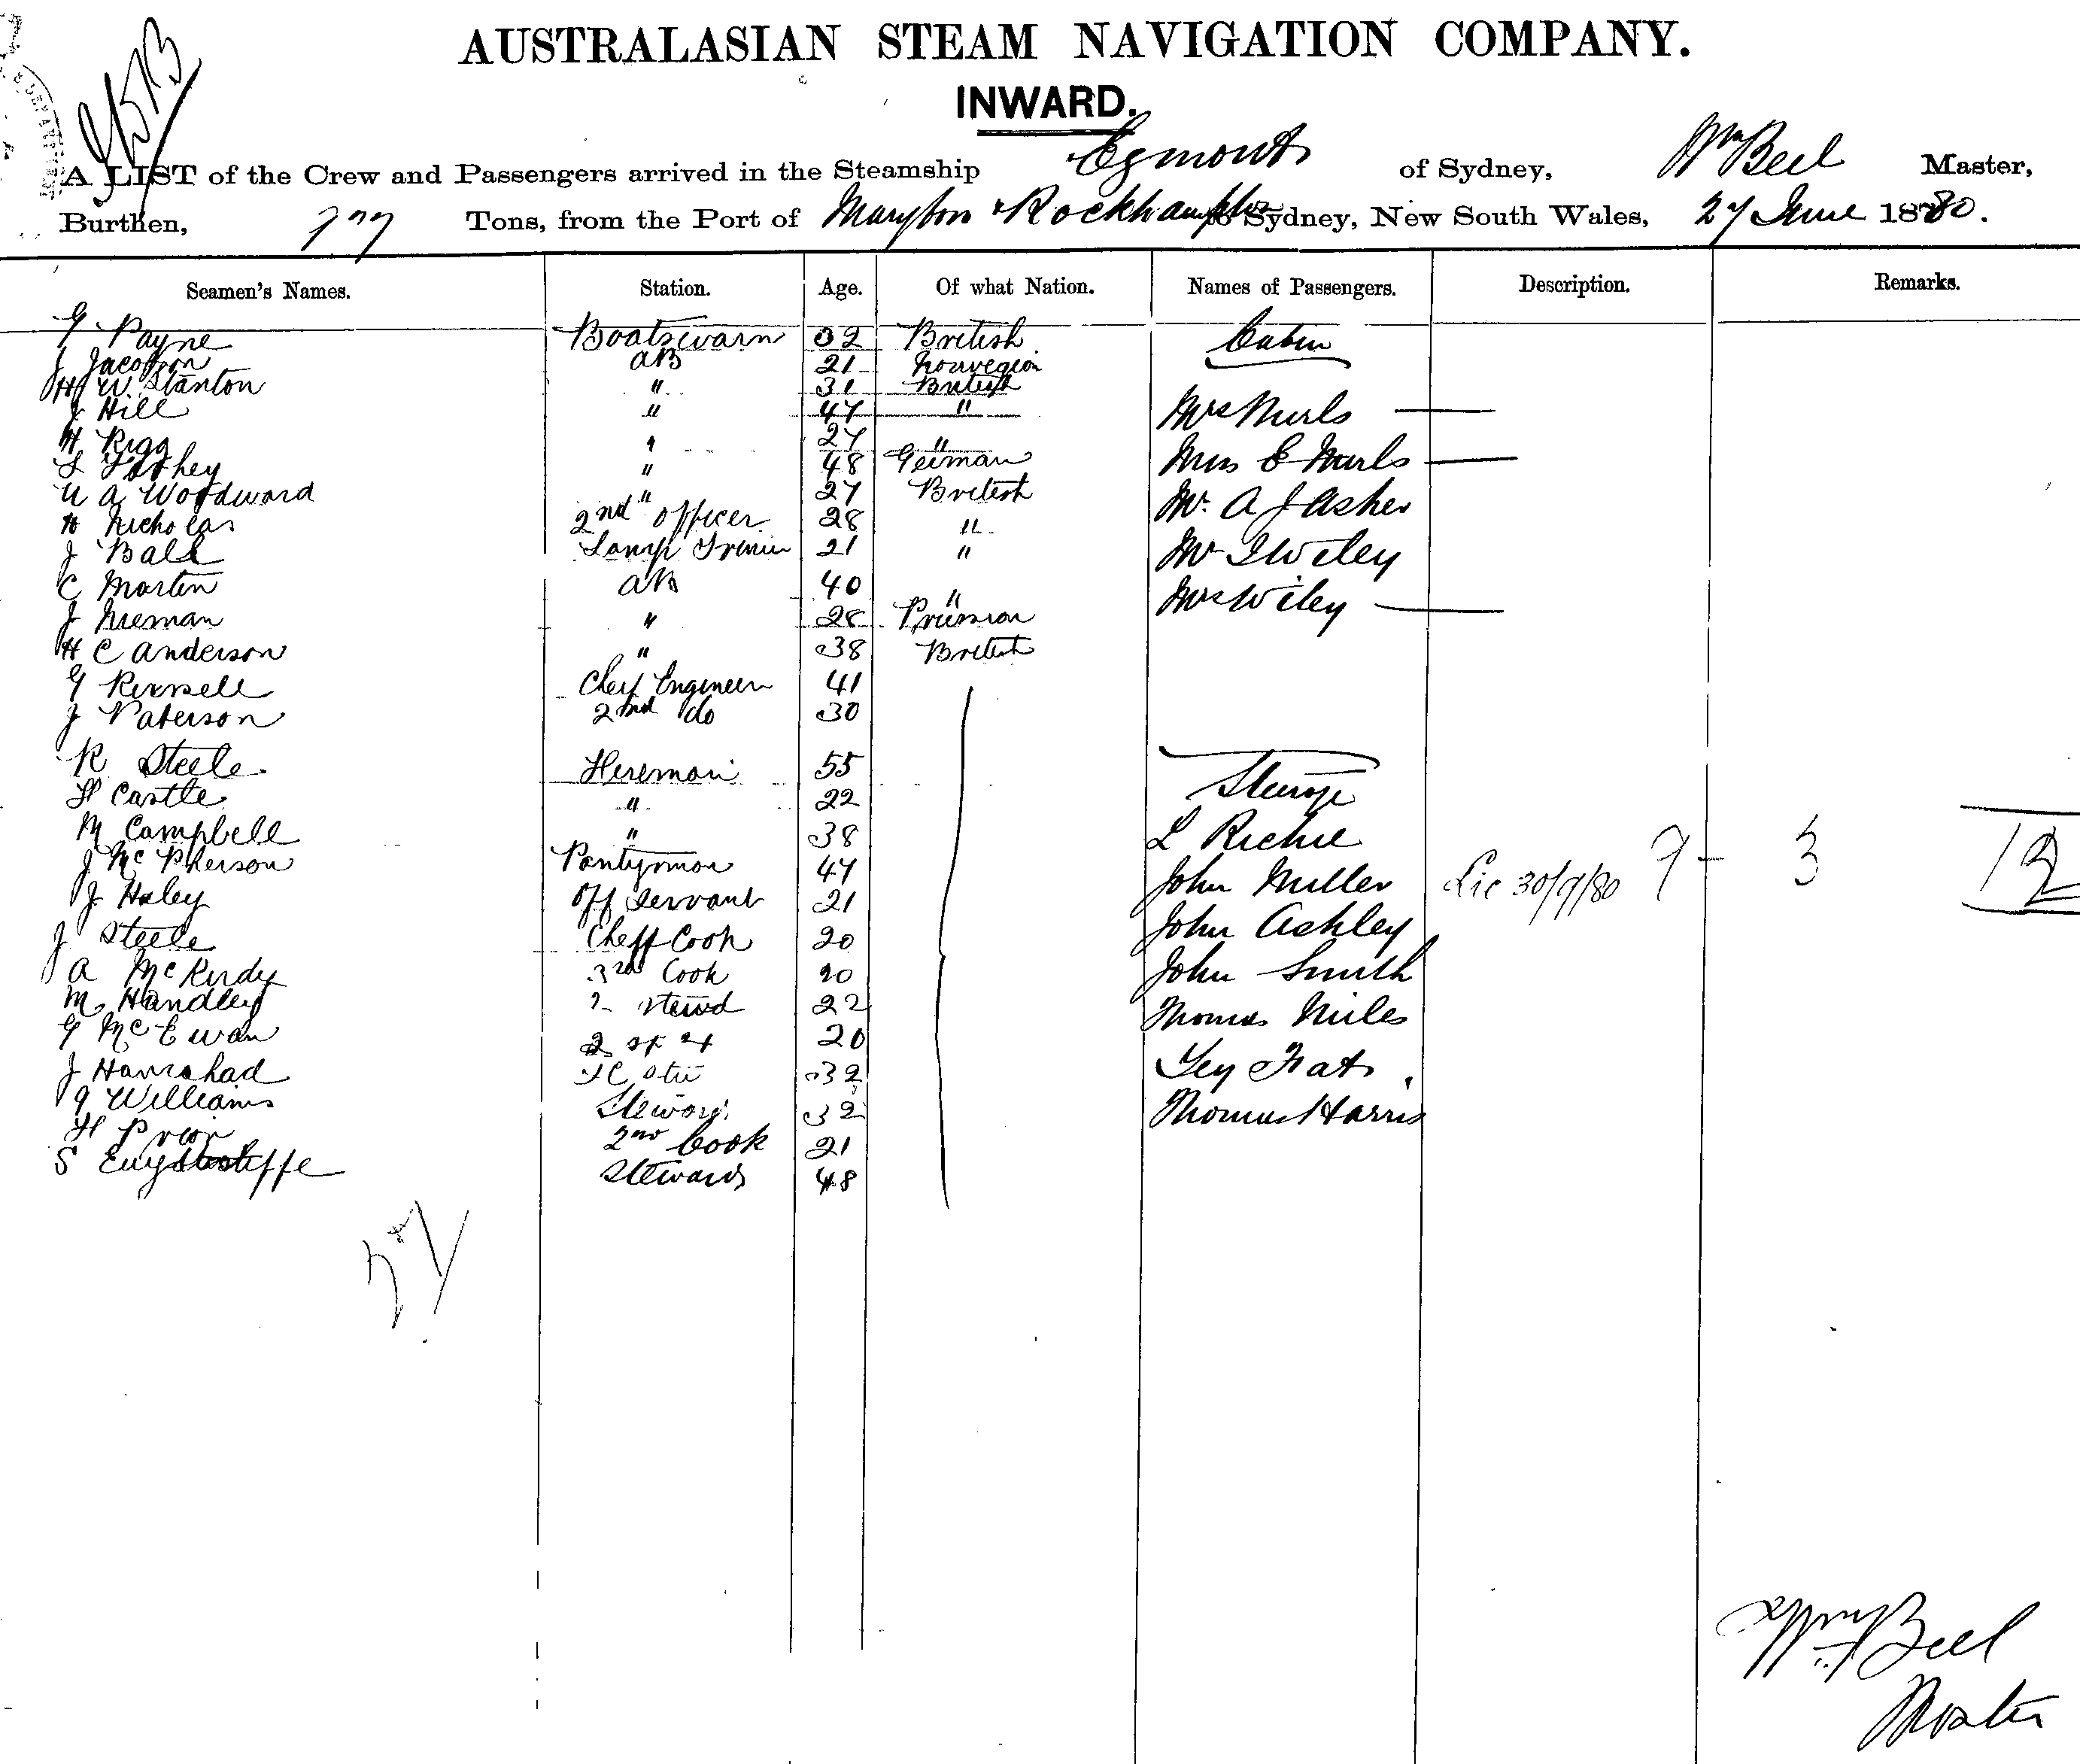 AUSTRALASIAN STEAM NAVIGATION COMPANY.
INWARD.
A LIST of the Crew and Passengers arrived in the Steamship Egmont of Sydney, Wm Beel Master,
Burthen, 777 Tons, from the Port of Marybro & Rockhampton to Sydney, New South Wales, 27 June 1880.
Seamen's Names. Station. Age. Of what Nation. Names of Passengers. Description. Remarks.
G Payne Boatswain 32 British Cabin
J Jacobson AB 21 Norwegian
H W Stanton " 31 British
J Hill " 47 " Mrs Murls —
H Rigg " 27 "
L 48 German Miss E Murls —
A Woodward " 27 British
H Nicholas 2nd Officer 28 " Mr. A J Asher
J Ball Lamp 21 " Mr Wiley
C Martin AB 40 " Mrs Wiley —
J Nieman " 28 Prussian
H C Anderson " 38 British
G Russell Chef Engineer 41
J Paterson 2nd do 30
R Steele Fireman 55 Steerage
H Castle " 22
M Campbell " 38 L Richie
J McPherson Pantryman 47 John Miller Lic 30/9/80 9 3 12
J Haley Off Servant 21 John Ashley
J Steele Cheff Cook 20
A McKurdy 3rd Cook 20 John Smith
M Handley 2 Stewd 22 Thomas Miles
G McEwan 20
J 32 Yey Fat
G Williams Steward 32 Thomas Harris
H Prior 2nd Cook 21
S Steward 48
27
Wm Beel
Master